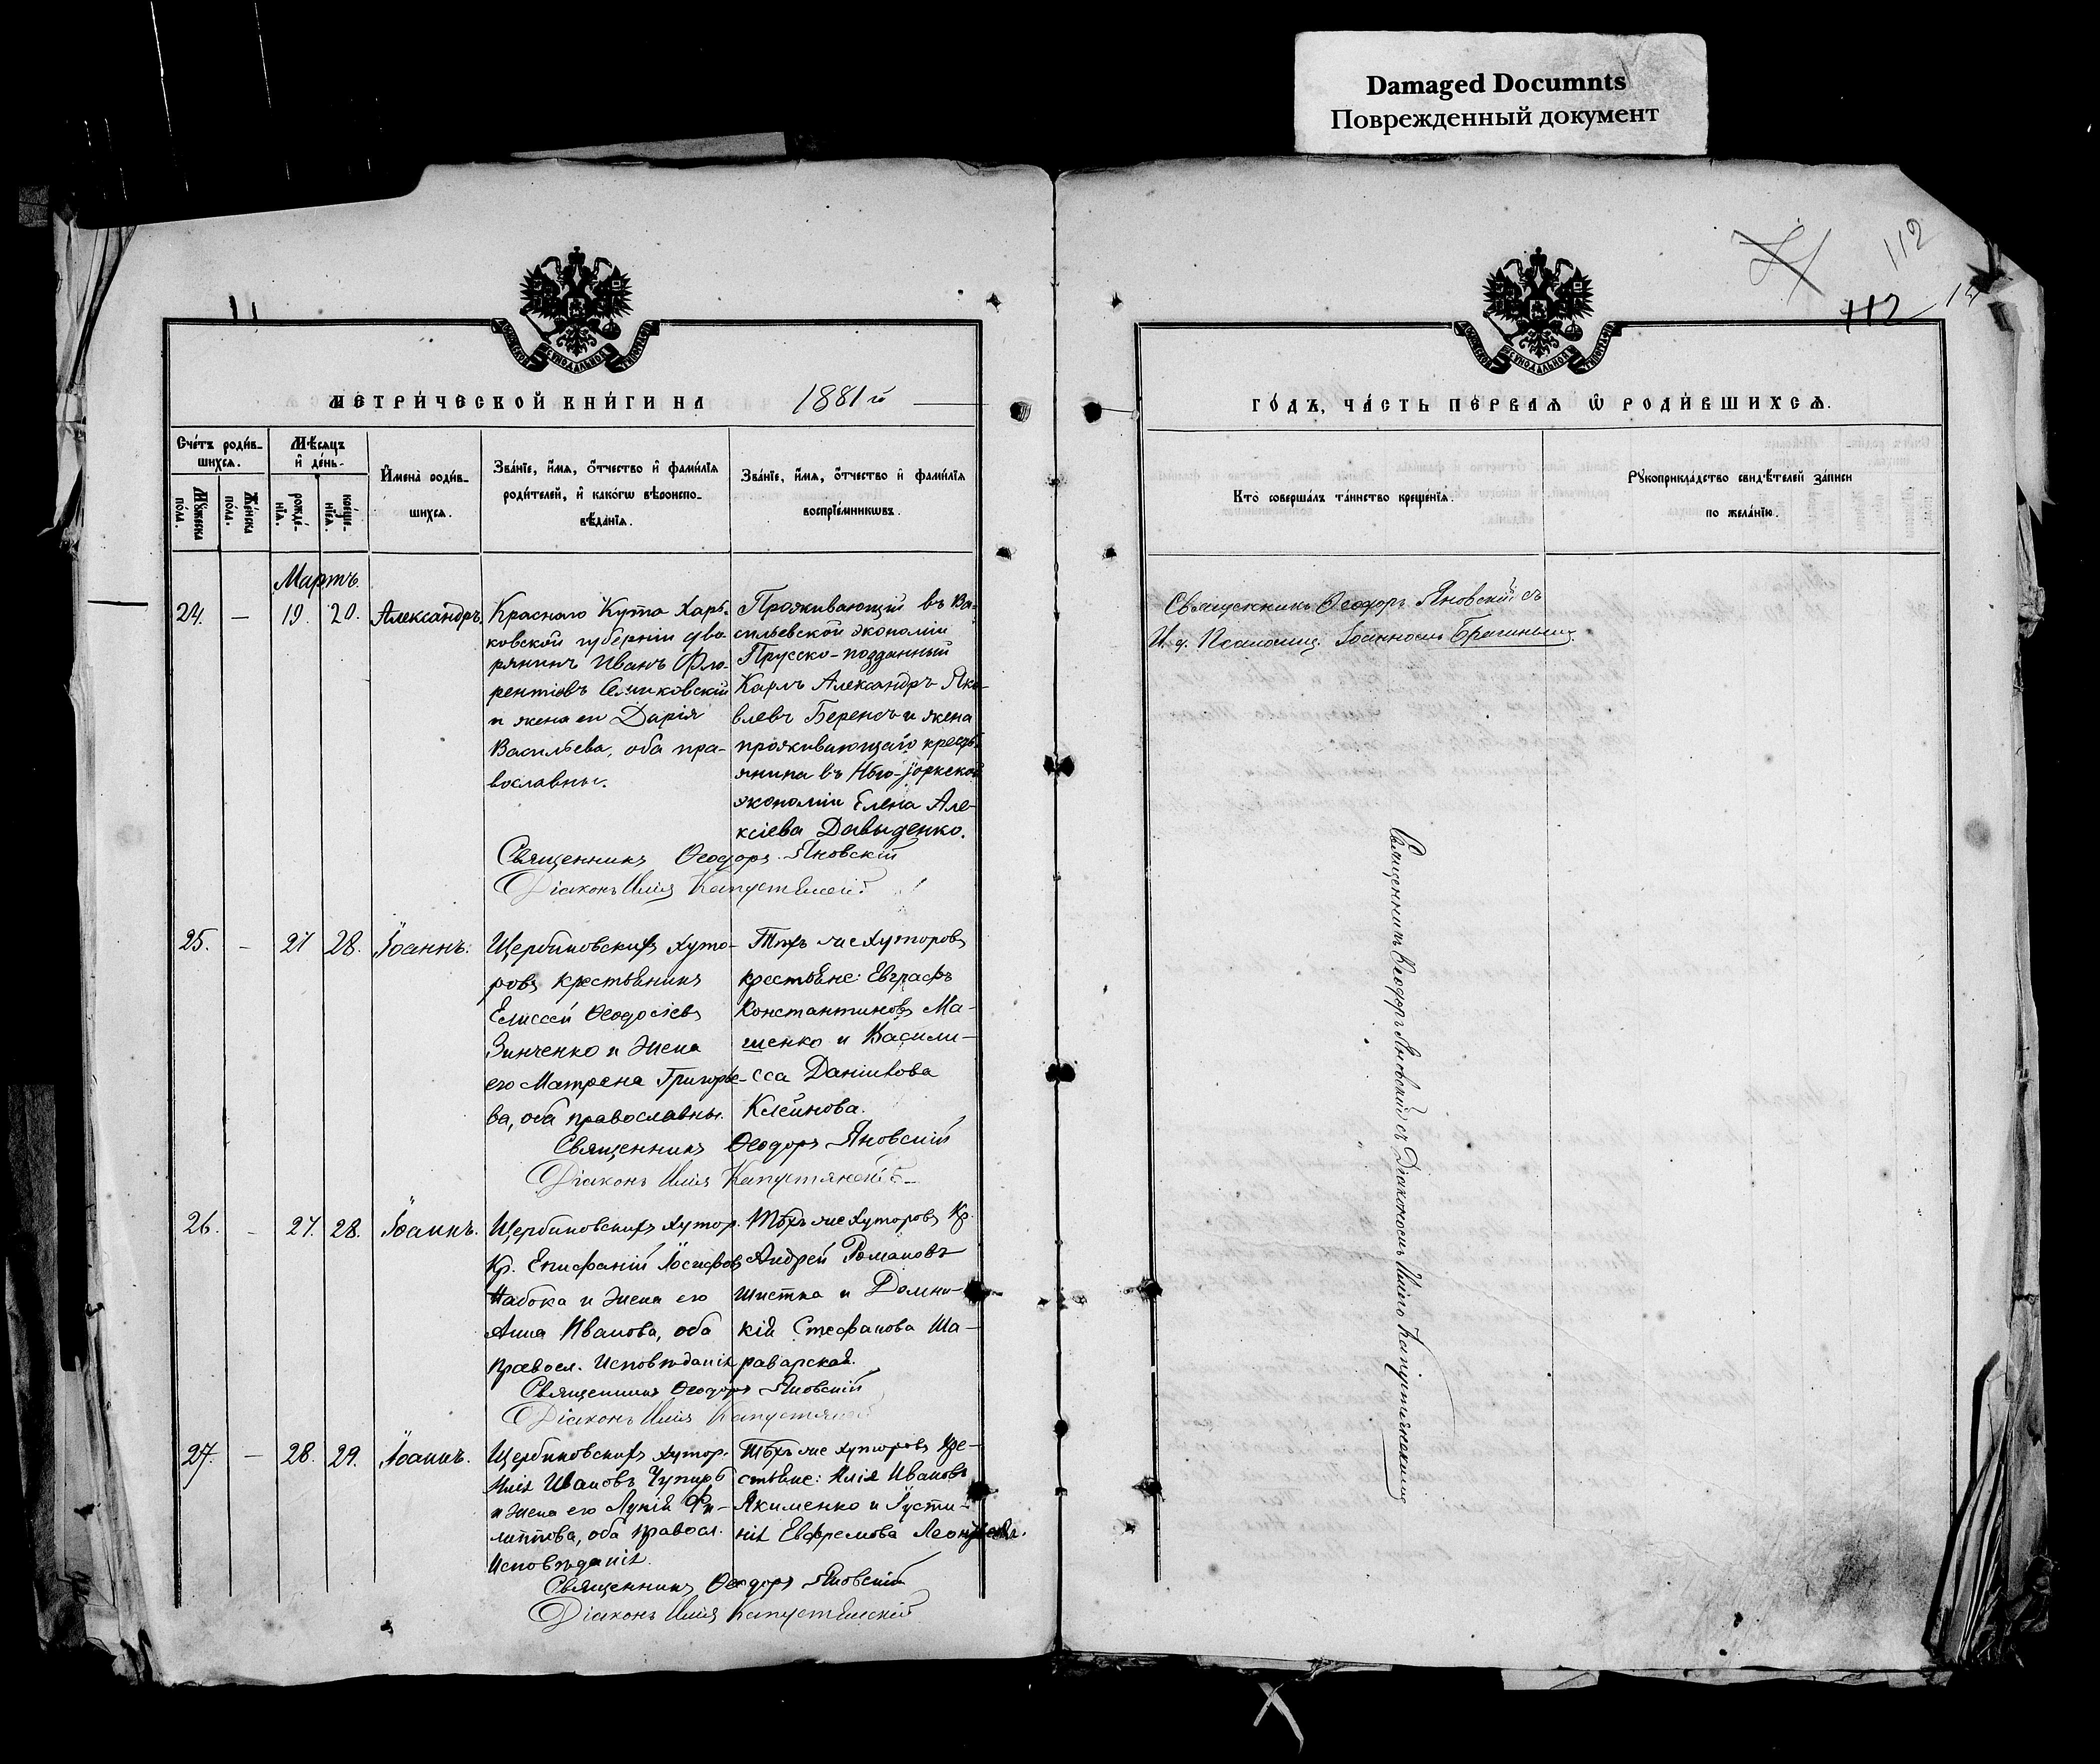 Damaged Documnts
Поврежденный документ
112
112
МЕТРИ́ЧЕСКОЙ КНИ́ГИ НА 1881й
Сче́тъ роди́в-
шихся.
Мѣ́сяцъ
и҆ де́нь.
И҆мена̀ роди́в-
шихся.
Зва́нїе, и҆́мя, ѻ҆́тчество и҆ фами́лїя
роди́телей, и҆ како́гѡ вѣроиспо-
вѣ́данїя.
Зва́нїе, и҆́мя, ѻ҆́тчество и҆ фами́лїя
воспрїе́мникѡвъ.
Мꙋ́жеска
по́ла.
Же́нска
по́ла.
рожде́-
нїя.
креще́-
нїя.
Мартъ.
24. — 19. 20. Александръ
Краснаго Кута Харь-
ковской губерніи дво
рянинъ Иванъ Фло-
рентіевъ Семиковскій
и жена его Дарія
Васильева, оба пра-
вославны.
Проживающій въ Ва-
сильевской экономіи
Прусско-подданный
Карлъ Александръ Яко-
влевъ Беренсъ и жена
проживающаго кресть
янина въ Нью-Іоркской
экономіи Елена Але-
ксіева Давыденко.
Священникъ Ѳеодоръ Яновскій
Діаконъ Илія Капустянскій
25. — 27 28. Іоаннъ.
Щербиновскихъ хуто-
ровъ крестьянинъ
Елисей Ѳеодосіевъ
Зинченко и жена
его Матрена Григорье-
ва, оба православны.
Тѣхъ же хуторовъ
крестьяне: Евграфъ
Константиновъ Ма-
шенко и Васили-
сса Даніилова
Клейнова.
Священникъ Ѳеодоръ Яновскій
Діаконъ Илія Капустянскій
26. — 27. 28. Іоаннъ.
Щербиновскихъ хутор.
Кр. Епифаній Іосифовъ
Набока и жена его
Анна Иванова, оба
правосл. исповѣданія
Тѣхъ же хуторовъ Кр.
Андрей Романовъ
Шистка и Домни-
кія Стефанова Ша-
раварская.
Священникъ Ѳеодоръ Яновскій
Діаконъ Илія Капустянскій
27. — 28. 29. Іоаннъ.
Щербиновскихъ хутор.
Илія Ивановъ Чупырь
и жена его Лукія Фи-
липпова, оба правосл.
исповѣданія.
Тѣхъ же хуторовъ кре-
стьяне: Илія Ивановъ
Якименко и Іусти-
нія Евфремова Леонтьева.
Священникъ Ѳеодоръ Яновскій
Діаконъ Илія Капустянскій
ГО́ДЪ, ЧА́СТЬ ПЕ́РВАЯ Ѡ҆ РОДИ́ВШИХСЯ.
Кто̀ соверша́лъ та́инство креще́нїя.
Рꙋкоприкла́дство свидѣ́телей за́писи
по жела́нїю.
Священникъ Ѳеодоръ Яновскій съ
И. д. Псаломщ. Іоанномъ Брагинымъ
Священникъ Ѳеодоръ Яновскій съ Діакономъ Иліею Капустянскимъ